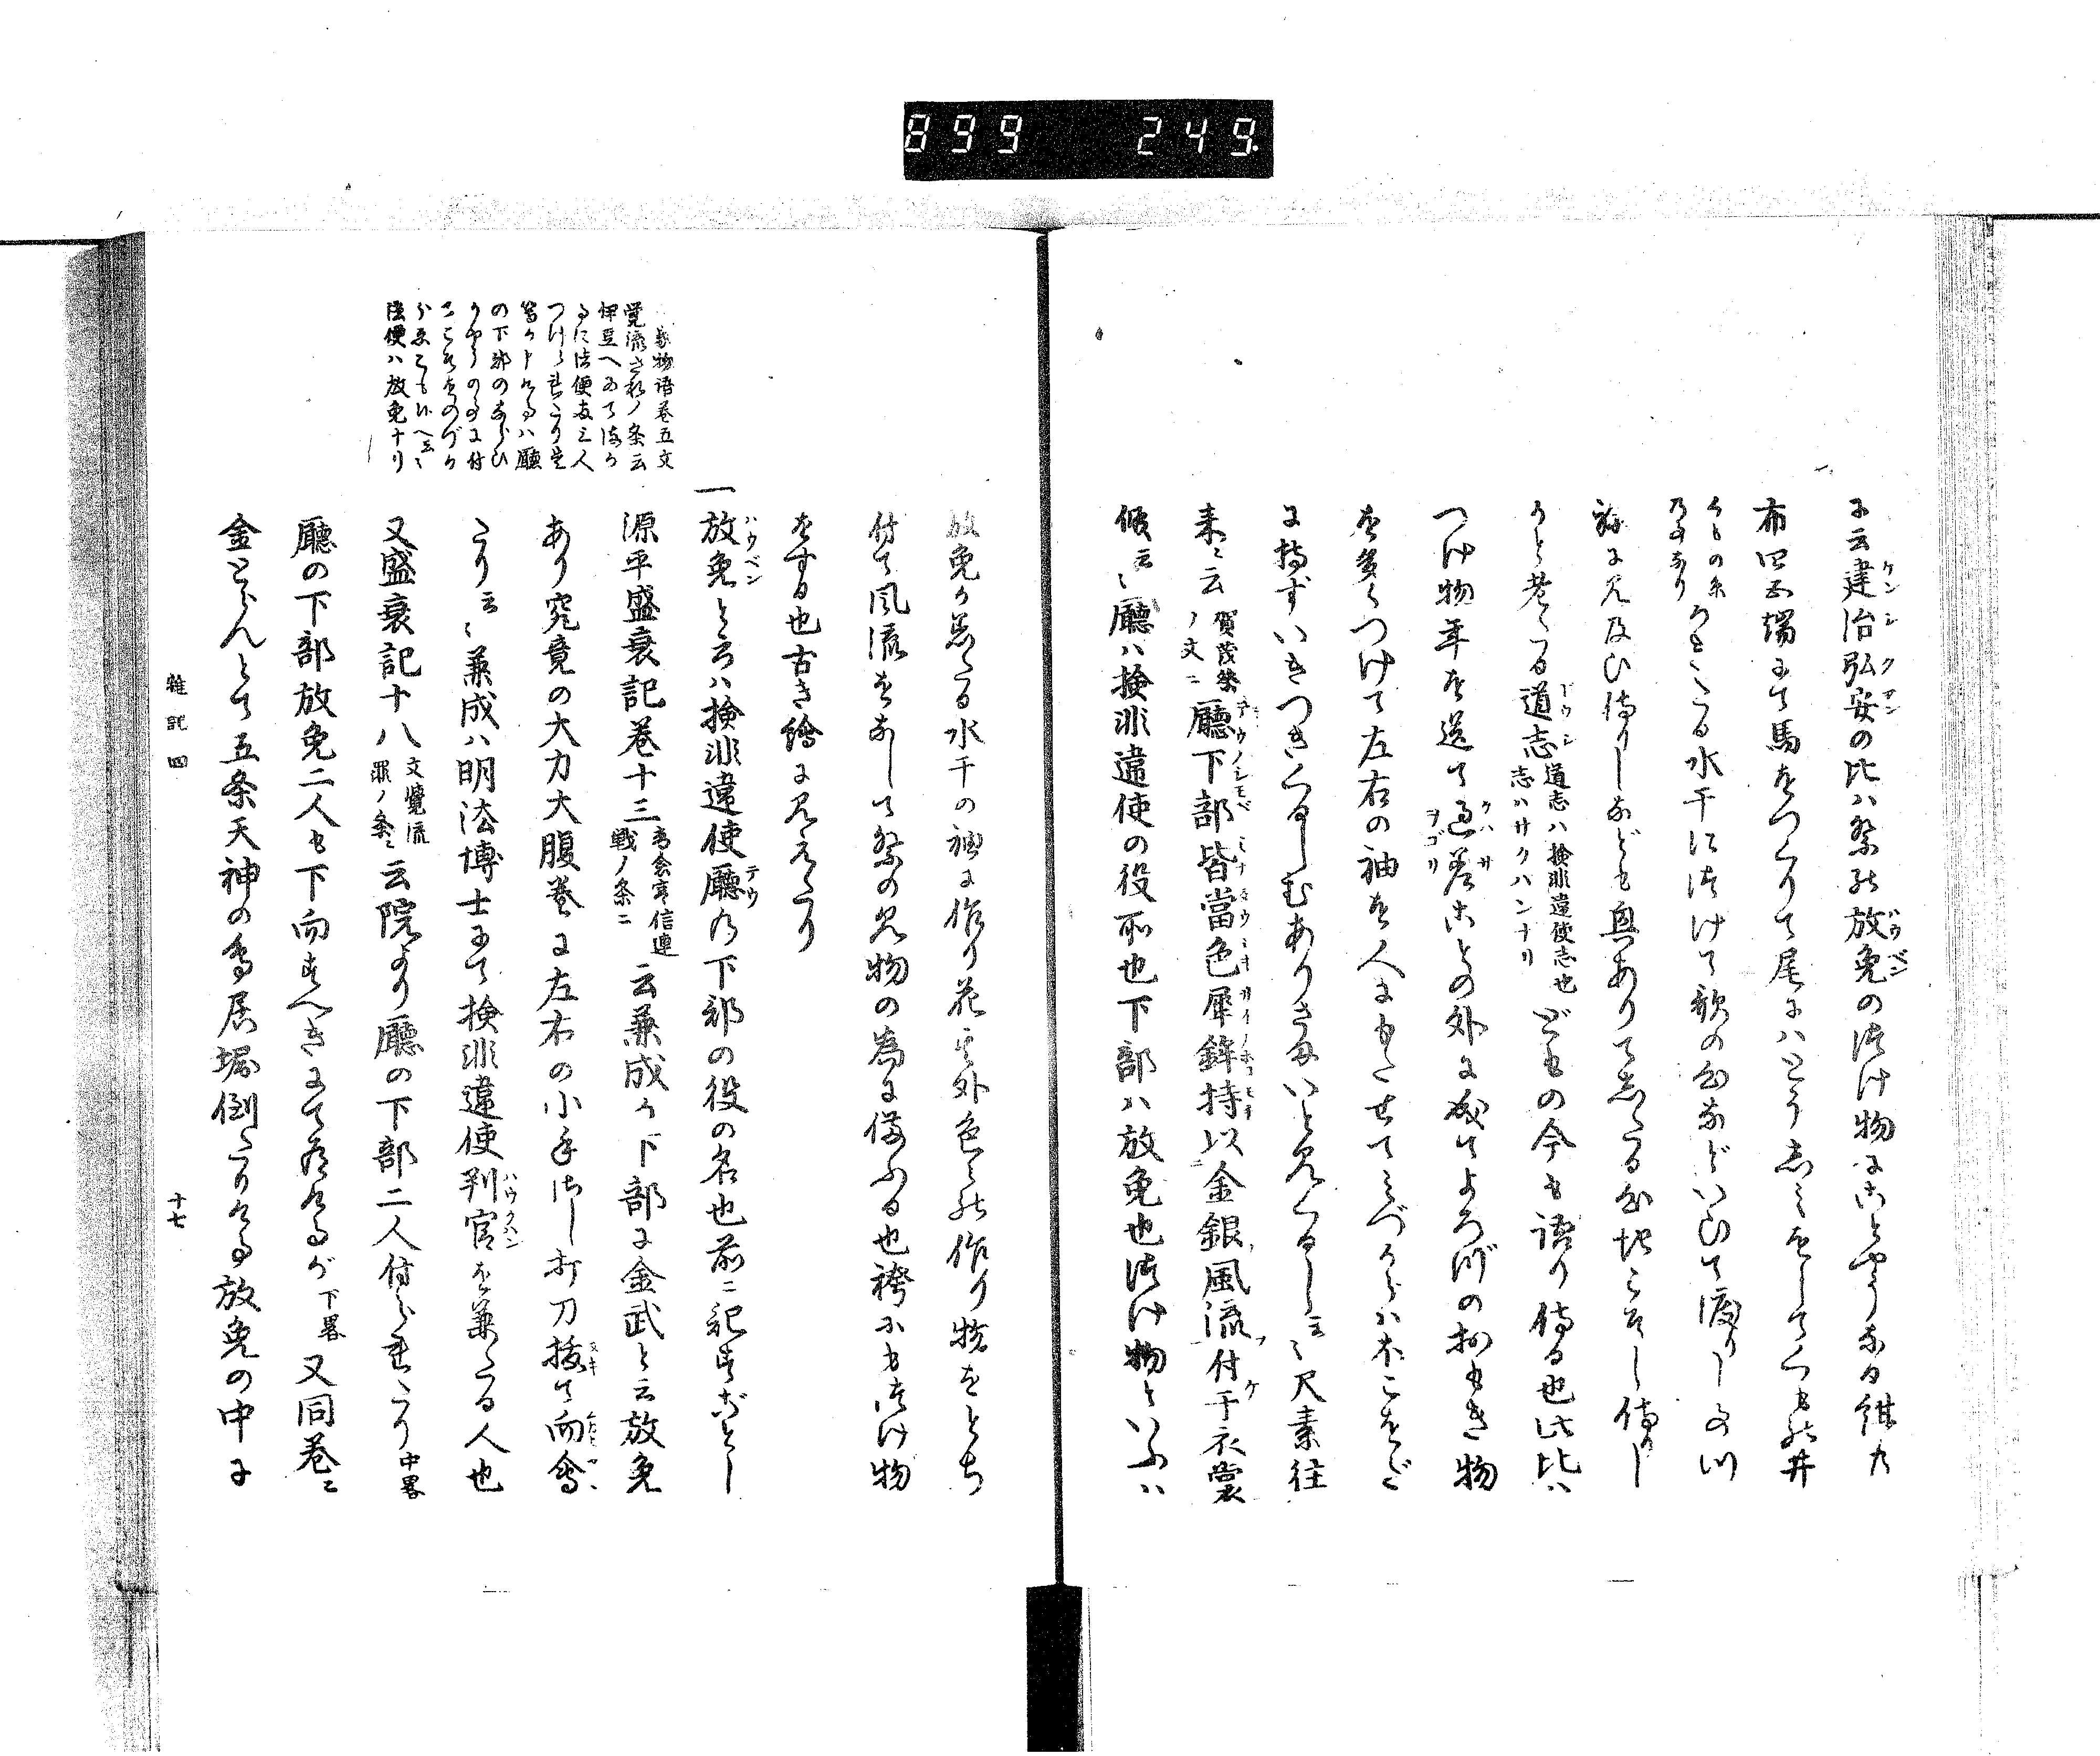 899 249.
に云建治弘安の比は祭の放免の付け物にことやうなる紺の
布四五端にて馬をつくりて尾にはとうしみをしてくもの井
かきたる水干に付けて歌の心などいひて渡りし事つ
ねに見及び侍りしなども興ありてしたる心地こそし侍りし
かと老たる道志
道志ハ検非違使志也
志ハサクハンナリ
どもの今も語り侍る也此比は
つけ物年を送て過差ことの外に成てよろづの物おもき物
を多くつけて左右の袖を人にもたせてみづからはほこをだ
に持ずいきつきくるしむありさまいと見くるし云々尺素往
来ニ云
賀茂祭
ノ文ニ
廳下部皆當色犀鉾持以金銀風流付于衣裳
廳ハ検非違使の役所也下部ハ放免也付け物といふハ
放免が着たる水干の袖に作り花其外色々の作り物をとぢ
付て風流をなして祭の見物の為に備ふる也袴にも付け物
をする也古き繪に見えたり
一放免と云ハ検非違使廳の下部の役の名也前ニ記すごとし
源平盛衰記巻十三
云兼成が下部に金武と云放免
あり究竟の大力大腹巻に左右の小手さし打刀抜て向會
たり云々兼成ハ明法博士にて検非違使判官を兼たる人也
又盛衰記十八
文覺流
罪ノ条ニ
云院より廳の下部二人付られたり中畧
廳の下部放免二人も下向すべきにて有けるが下畧又同巻ニ
金とらんとて五条天神の鳥居堀倒たりける放免の中に
物語巻五文
覚流されノ条云
伊豆へゐて行か
るに法便両三人
つけられたり是
等が申けるハ廳
の下部のならひ
かやうの事に付
てこそをのづか
ら
法便ハ放免ナリ
雑記四
十七